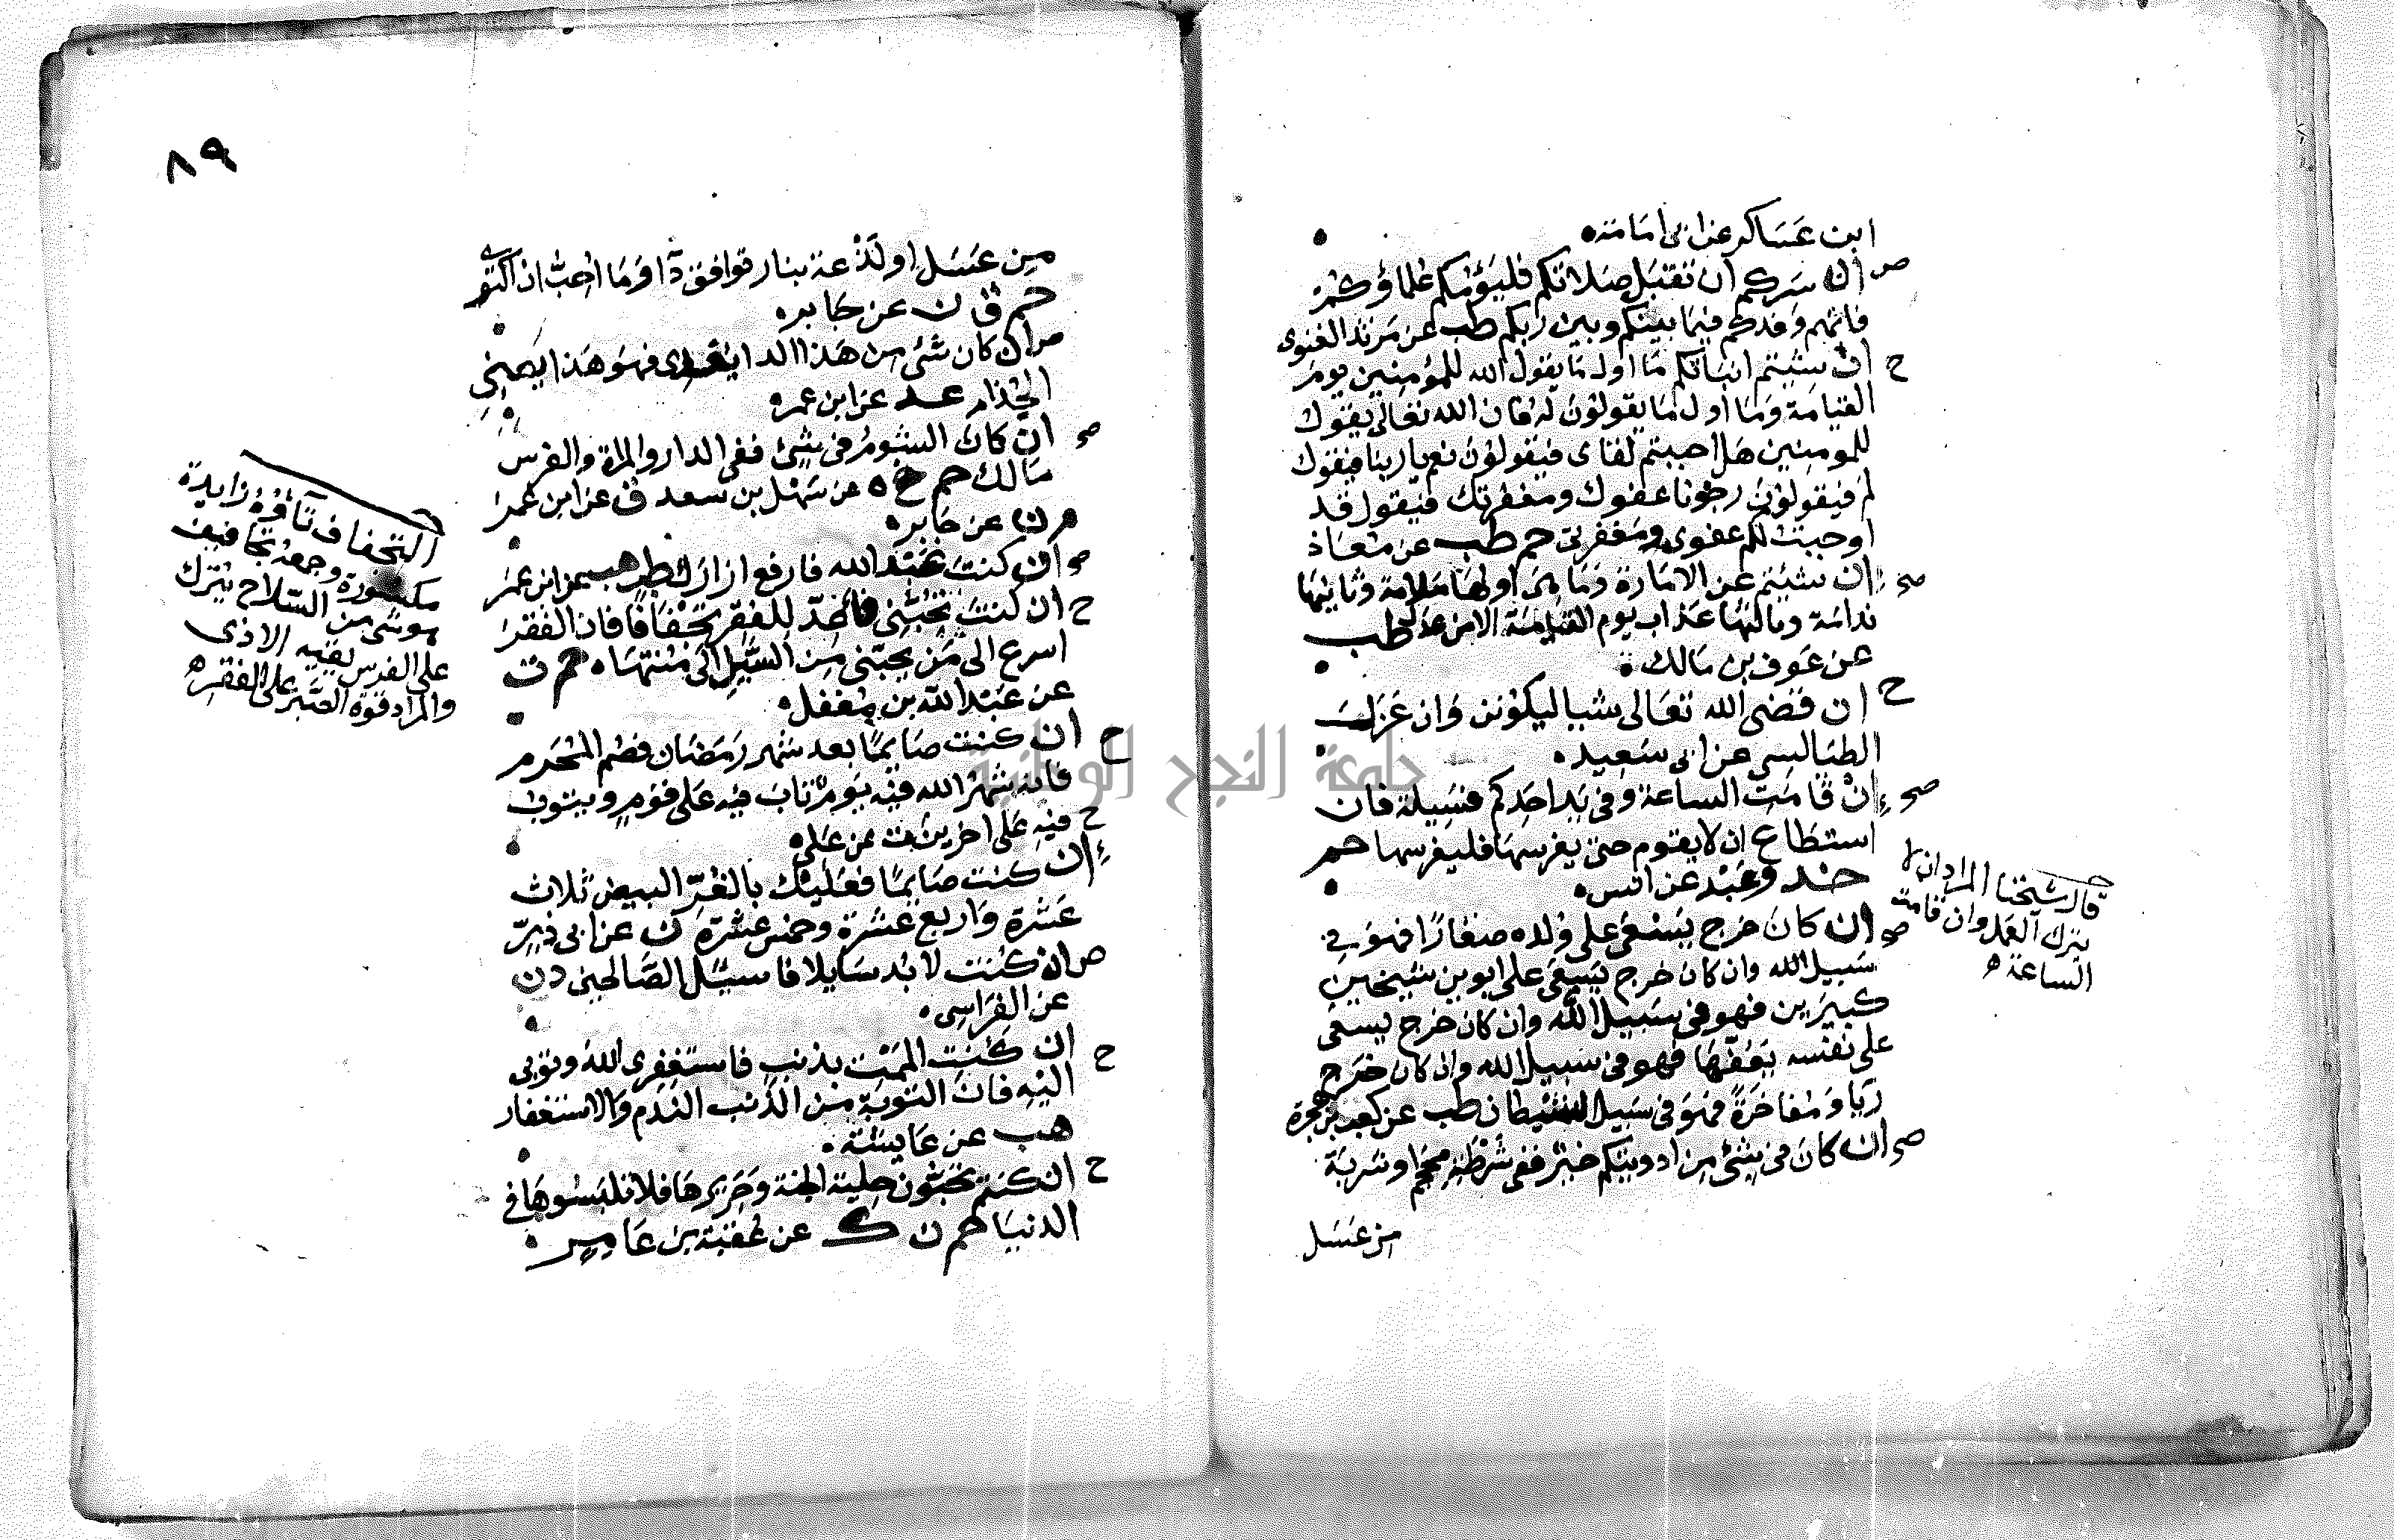 ابن عساكر عن ابى امامة
صر ان سركم ان تقبل صلاتكم فليؤمكم علماؤكم
فانهم وفدكم فيما بينكم وبين ربكم طب عن مرثد الغنوى
ح ان شيتم انباتكم ما اول ما يقول الله للمؤمنين يوم
القيامة وما اول ما يقولون له فان الله تعالى يقول
للمومنين هل احببتم لقاى فيقولون نعم يا ربنا فيقول
لم فيقولون رجونا عفوك ومغفرتك فيقول قد
اوجبت لكم عفوى ومغفرتى حم طب عن معاذ
صح ان شيتم عن الامارة وما هى اولها ملامة وثانيها
ندامة وثالثها عذاب يوم القيامة الا من عدل طب
عن عوف بن مالك
ح ان قضى الله تعالى شيا ليكونن وان عزل
الطيالسى عن ابى سعيد
صح ان قامت الساعة وفى يد احدكم فسيلة فان
استطاع ان لا يقوم حتى يغرسها فليغرسها حم
خد وعبد عن انس
قال شيخنا المراد ان لا
يترك العمل وان قامت
الساعة ه
صح ان كان خرج يسعى على ولده صغارا فهو فى
سبيل الله وان كان خرج يسعى على ابوين شيخين
كبيرين فهو فى سبيل الله وان كان خرج يسعى
على نفسه يعفها فهو فى سبيل الله وان كان خرج
ريا ومفاخرة فهو فى سبيل الشيطان طب عن كعب بن عجرة
صح ان كان فى شئ من ادويتكم خير ففى شرطة محجم او شربة
من عسل
٨٩
من عسل او لذعة بنار توافق دآ وما احب ان اكتوى
حم ق ن عن جابر
صر ان كان شئ من هذا الدا يعدى فهو هذا يعنى
الجذام عد عن ابن عمر
صح ان كان الشوم فى شئ ففى الدار والمراة والفرس
مالك حم خ ه عن سهل بن سعد ق عن ابن عمر
م ن عن جابر
صح ان كنت عبد الله فارفع ازارك طب هب عن ابن عمر
ح ان كنت تحبنى فاعد للفقر تجفافا فان الفقر
اسرع الى من يحبنى من السيل الى منتهاه حم ت
عن عبد الله بن مغفل
التجفاف تآؤه زايدة
مكسورة وجمعه تجافيف
هو شئ من السلاح يترك
على الفرس يقيه الاذى
والمراد قوة الصبر على الفقر ه
ح ان كنت صايما بعد شهر رمضان فصم المحرم
فانه شهر الله فيه يوم تاب فيه على قوم ويتوب
فيه على اخرين ت عن على
ح ان كنت صايما فعليك بالغر البيض ثلاث
عشرة واربع عشرة وخمس عشرة ن عن ابى ذر
صر ان كنت لا بد سايلا فاسيل الصالحين د ن
عن الفراسى
ح ان كنت الممت بذنب فاستغفرى الله وتوبى
اليه فان التوبة من الذنب الندم والاستغفار
هب عن عايشة
ح ان كنتم تحبون حلية الجنة وحريرها فلا تلبسوها فى
الدنيا حم ن ك عن عقبة بن عامر
جامعة النجاح الوطنية